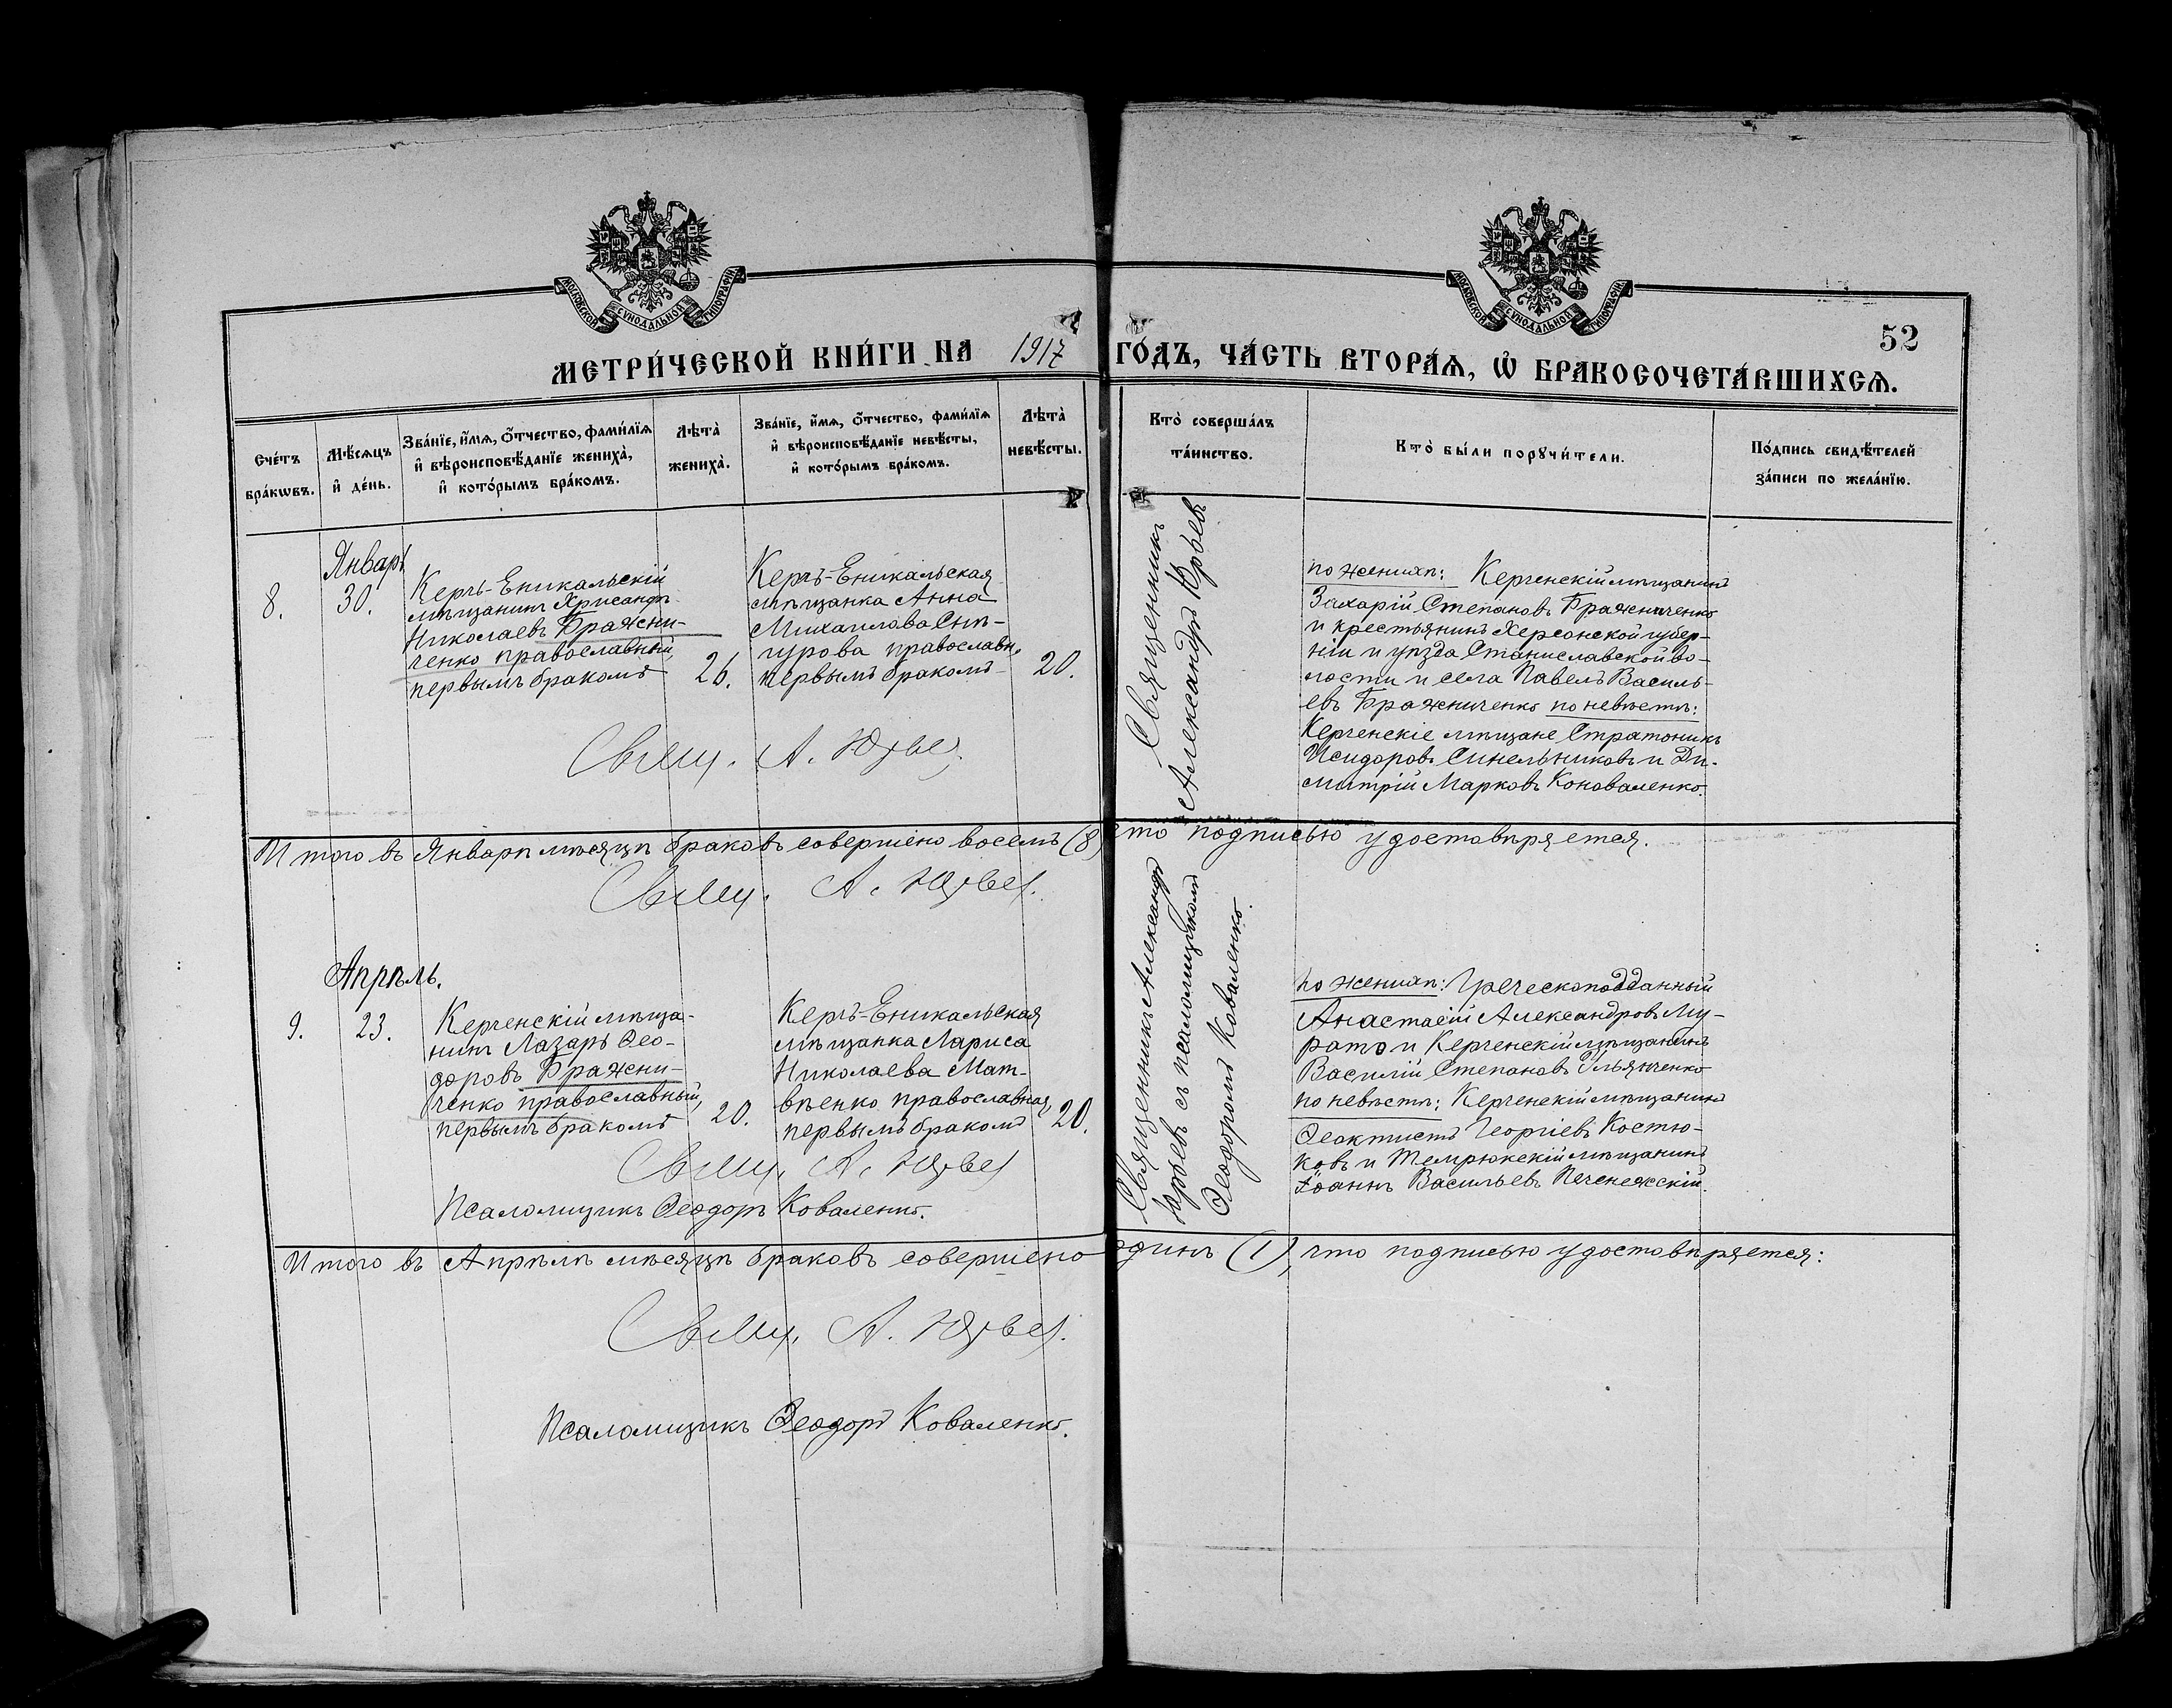 МОСКОВСКОЙ СѴНОДАЛЬНОЙ ТИПОГРАФІИ
МОСКОВСКОЙ СѴНОДАЛЬНОЙ ТИПОГРАФІИ
52
МЕТРИ́ЧЕСКОЙ КНИ́ГИ НА 1917 ГО́ДЪ, ЧА́СТЬ ВТОРА́Ѧ, Ѡ҆ БРАКОСОЧЕТА́ВШИХСѦ.
Сче́тъ
бра́кѡвъ.
Мѣ́сѧцъ
и҆ де́нь.
Зва́нїе, и҆́мѧ, ѻ҆́тчество, фами́лїѧ
и҆ вѣроисповѣ́данїе жениха̀,
и҆ кото́рымъ бра́комъ.
Лѣта̀
жениха̀.
Зва́нїе, и҆́мѧ, ѻ҆́тчество, фами́лїѧ
и҆ вѣроисповѣ́данїе невѣ́сты,
и҆ кото́рымъ бра́комъ.
Лѣта̀
невѣ́сты.
Кто̀ соверша́лъ
та́инство.
Кто̀ бы́ли порꙋчи́тели.
По́дпись свидѣ́телей
за́писи по жела́нїю.
8.
Январь
30.
Керчь-Еникальскій
мѣщанинъ Хрисанфъ
Николаевъ Бражни-
ченко православный,
первымъ бракомъ
26.
Керчь-Еникальская
мѣщанка Анна
Михаилова Снѣ-
гурова православн.
первымъ бракомъ
20.
Священникъ
Александръ Юрьевъ
по женихѣ: Керченскій мѣщанинъ
Захарій Степановъ Бражниченко
и крестьянинъ Херсонской губер-
ніи и уѣзда Станиславской во-
лости и села Павелъ Василь-
евъ Бражниченко по невѣстѣ:
Керченскіе мѣщане Стратоникъ
Исидоровъ Синельниковъ и Ди-
митрій Марковъ Коноваленко.
Свящ. А. Юрьев
Итого въ Январѣ мѣсяцѣ браковъ совершено восемь (8) что подписью удостовѣряется.
Свящ. А. Юрьев.
Апрѣль.
9.
23.
Керченскій мѣща-
нинъ Лазарь Ѳео-
доровъ Бражни-
ченко православный,
первымъ бракомъ
20.
Керчь-Еникальская
мѣщанка Лариса
Николаева Мат-
вѣенко православная,
первымъ бракомъ
20.
Священникъ Александръ
Юрьевъ съ псаломщикомъ
Ѳеодоромъ Коваленко.
по женихѣ: Греческоподданный
Анастасій Александровъ Му-
рато и Керченскій мѣщанинъ
Василій Степановъ Ульянченко
по невѣстѣ: Керченскій мѣщанинъ
Ѳеоктистъ Георгіевъ Костю-
ковъ и Темрюкскій мѣщанинъ
Іоаннъ Васильевъ Печенежскій.
Свящ. А. Юрьев
Псаломщикъ Ѳеодоръ Коваленко.
Итого въ Апрѣлѣ мѣсяцѣ браковъ совершено одинъ (1), что подписью удостовѣряется:
Свящ. А. Юрьев.
Псаломщикъ Ѳеодоръ Коваленко.